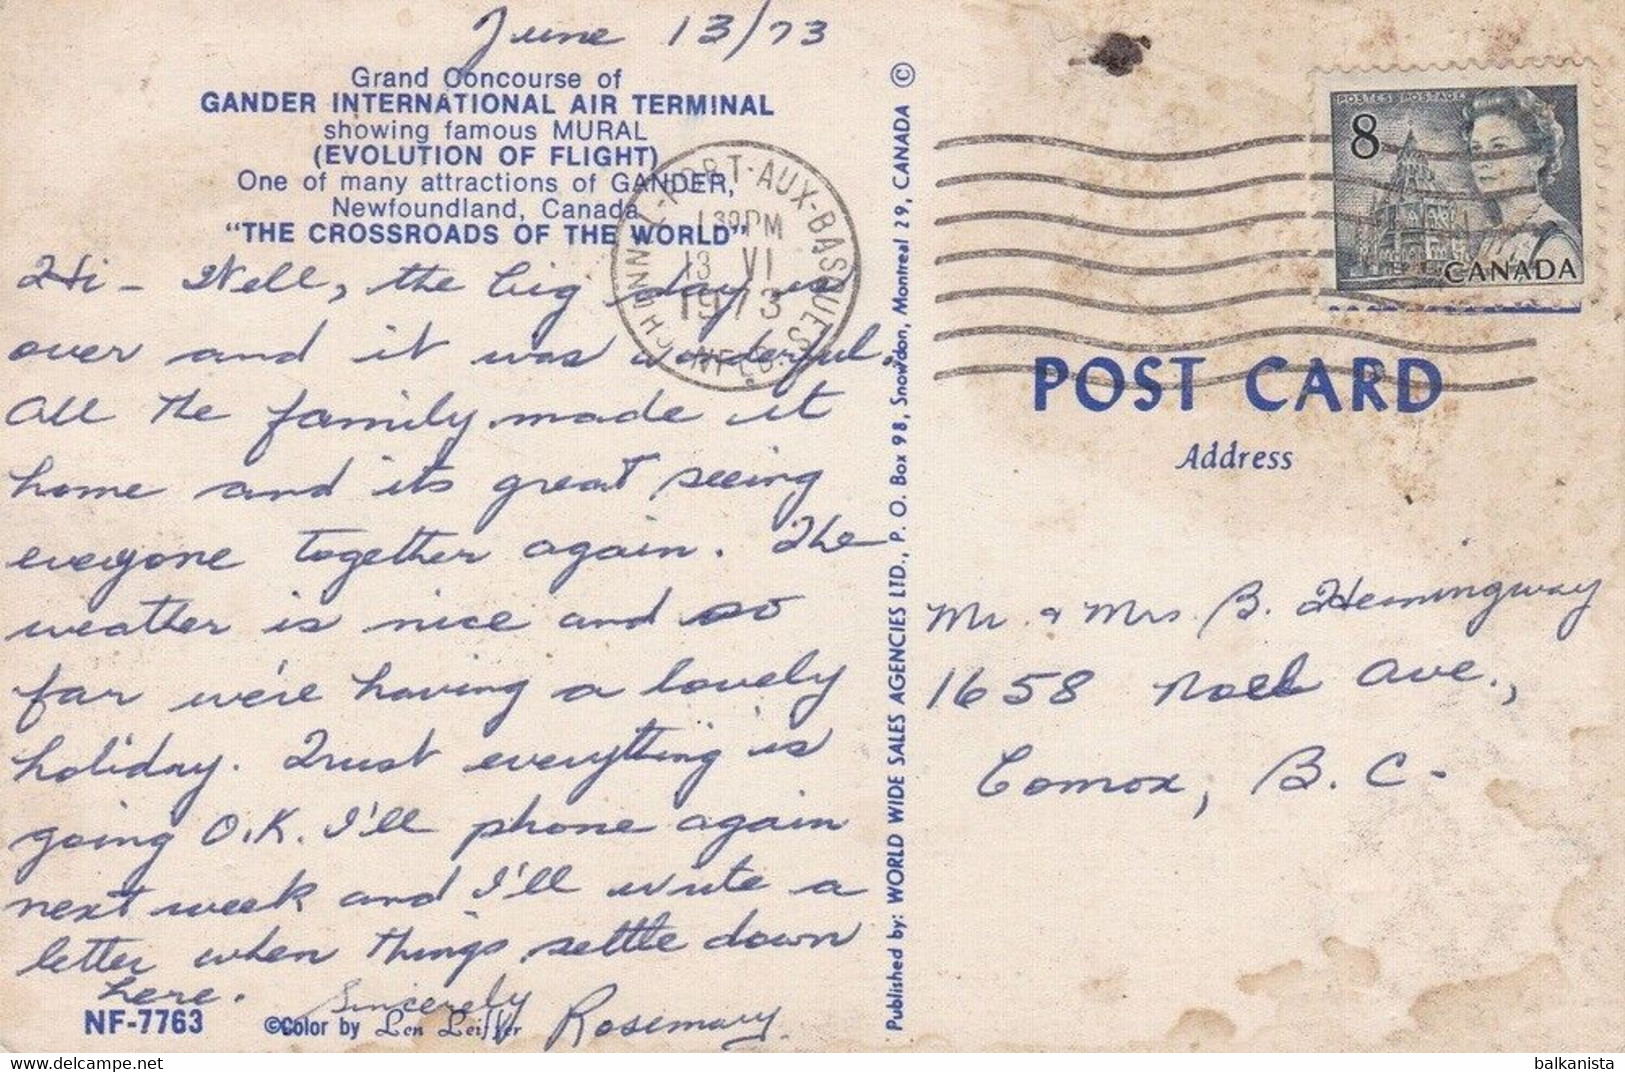 June 13/73
Grand Concourse of
GANDER INTERNATIONAL AIR TERMINAL
showing famous MURAL
(EVOLUTION OF FLIGHT)
One of many attractions of GANDER,
Newfoundland, Canada
"THE CROSSROADS OF THE WORLD"
Hi - Well, the big day is
over and it was wonderful.
All the family made it
home and its great seeing
everyone together again. The
weather is nice and so
far we're having a lovely
holiday. Trust everything is
going O.K. I'll phone again
next week and I'll write a
letter when things settle down
here.
Sincerely
Rosemary.
NF-7763
©Color by Len Leiffer
CHANNEL-PORT-AUX-BASQUES
1 30PM
13 VI
1973
NFLD.
Published by: WORLD WIDE SALES AGENCIES LTD., P. O. Box 98, Snowdon, Montreal 29, CANADA ©
POSTES POSTAGE
8
CANADA
POST CARD
Address
Mr. & Mrs. B. Hemingway
1658 Noel Ave.,
Comox, B. C.
balkanista